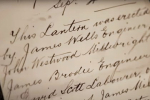 1 Sep.
This Lantern was erected
by James Wells Engineer,
John Westwood Millwright
James Brodie Engineer
David Scott Labourer,
James